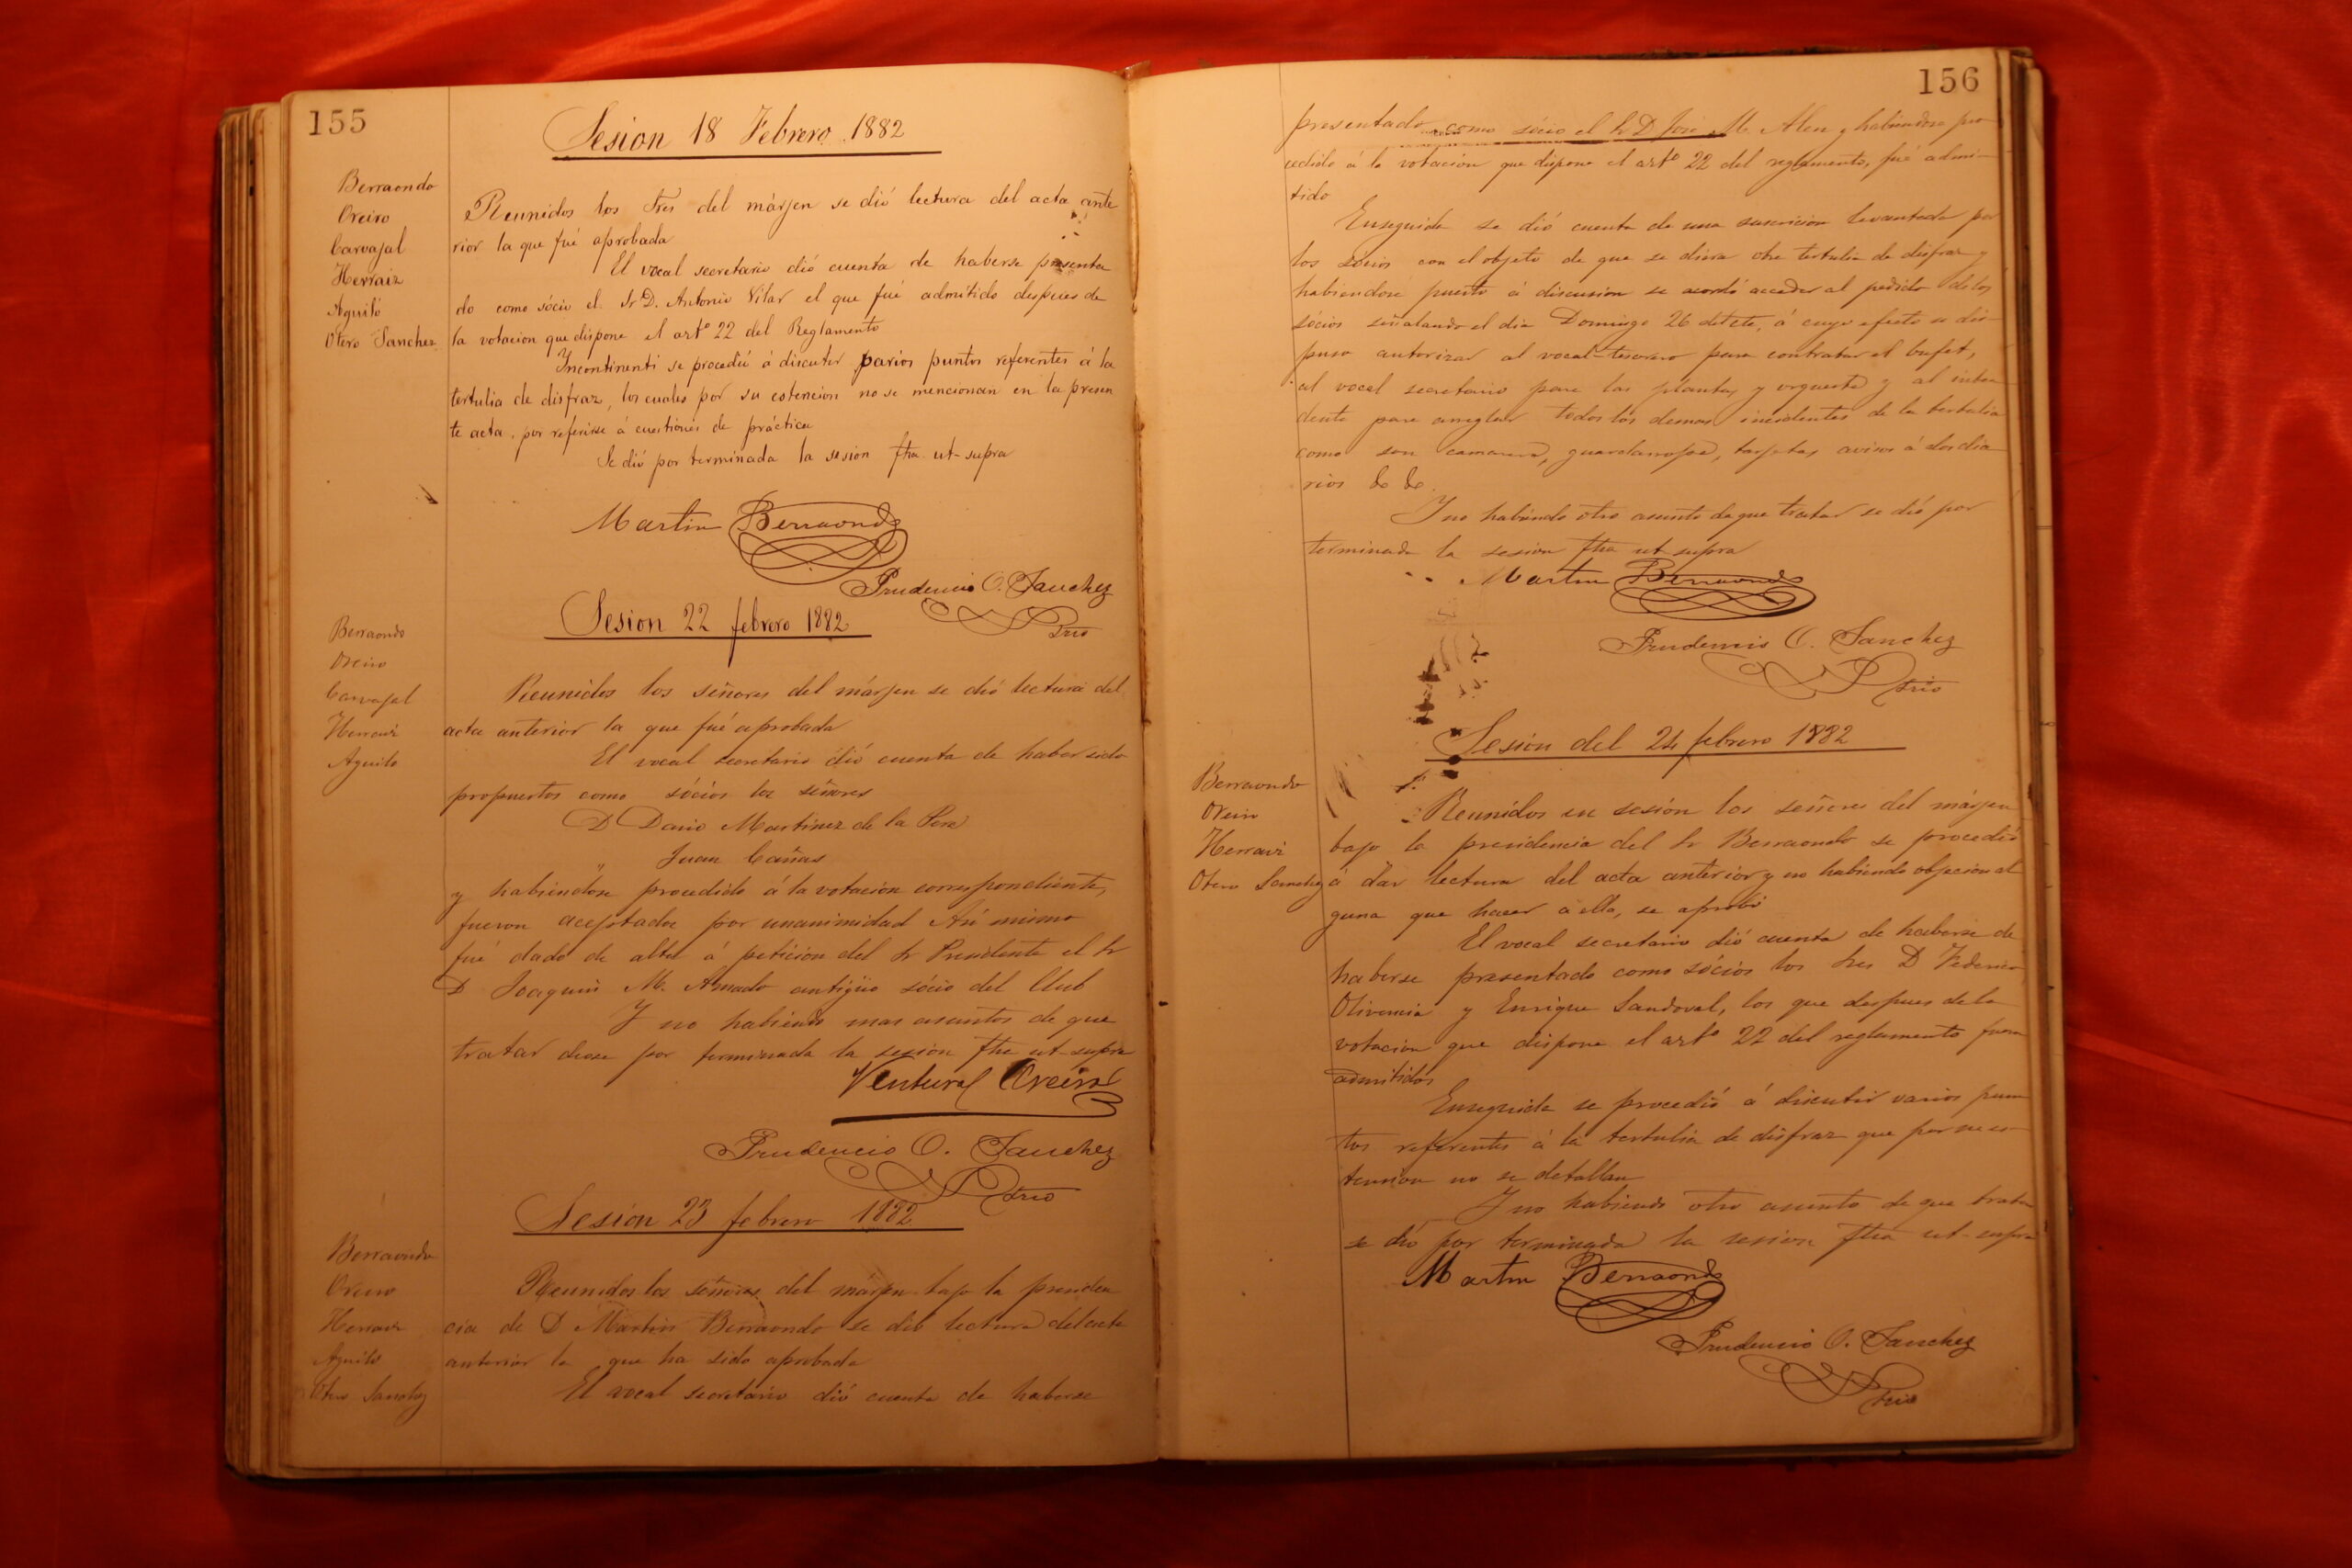 155
Sesion 18 Febrero 1882
Berraondo
Oreiro
Carvajal
Herraiz
Aguiló
Otero Sanchez
Reunidos los Sres del márjen se dió lectura del acta ante
rior la que fué aprobada
El vocal secretario dió cuenta de haberse presenta
do como sócio el Sr D. Antonio Vilar el que fué admitido despues de
la votacion que dispone el artº 22 del Reglamento
Incontinenti se procedió á discutir varios puntos referentes á la
tertulia de disfraz, los cuales por su estencion no se mencionan en la presen
te acta, por referirse á cuestiones de práctica
Se dió por terminada la sesion fha ut-supra
Martin Berraondo
Prudencio O. Sanchez
Srio
Sesion 22 febrero 1882
Berraondo
Oreiro
Carvajal
Herraiz
Aguilo
Reunidos los señores del márjen se dió lectura del
acta anterior la que fué aprobada
El vocal secretario dió cuenta de haber sido
propuestos como sócios los señores
D Dario Martinez de la Pera
" Juan Cañas
y habiendose procedido á la votacion correspondiente,
fueron aceptados por unanimidad Asi mismo
fué dado de alta á peticion del Sr Presidente el Sr
D Joaquin M. Amado antigüo sócio del Club
Y no habiendo mas asuntos de que
tratar diose por terminada la sesion fha ut-supra
Ventura Oreiro
Prudencio O. Sanchez
Srio
Sesion 23 febrero 1882
Berraondo
Oreiro
Herraiz
Aguiló
Otero Sanchez
Reunidos los señores del márjen bajo la presiden
cia de D Martin Berraondo se dió lectura del acta
anterior la que ha sido aprobada
El vocal secretario dió cuenta de haberse
156
presentado como sócio el Sr D José M. Alen y habiendose pro
cedido á la votacion que dispone el artº 22 del reglamento, fué admi-
tido
Enseguida se dió cuenta de una suscricion levantada por
los socios con el objeto de que se diera otra tertulia de disfraz y
habiendose puesto á discusion se acordó acceder al pedido de los
sócios señalando el dia Domingo 26 del cte, á cuyo efecto se dis-
puso autorizar al vocal-tesorero para contratar el bufet,
al vocal secretario para las plantas y orquesta y al inten
dente para arreglar todos los demas incidentes de la tertulia
como son camareros, guardarropa, tarjetas avisos á los dia
rios &c &c.
Y no habiendo otro asunto de que tratar se dió por
terminada la sesion fha ut supra
Martin Berraondo
Prudencio O. Sanchez
Srio
Sesion del 24 febrero 1882
Berraondo
Oreiro
Herraiz
Otero Sanchez
Reunidos en sesión los señores del márjen
bajo la presidencia del Sr Berraondo se procedió
á dar lectura del acta anterior y no habiendo objecion al
guna que hacer á ella, se aprobó
El vocal secretario dió cuenta de haberse de
haberse presentado como sócios los Sres D Federico
Olivencia y Enrique Sandoval, los que despues de la
votacion que dispone el artº 22 del reglamento fueron
admitidos
Enseguida se procedió á discutir varios pun
tos referentes á la tertulia de disfraz que por su es-
tension no se detallan
Y no habiendo otro asunto de que tratar
se dió por terminada la sesion fha ut-supra
Martin Berraondo
Prudencio O. Sanchez
Srio